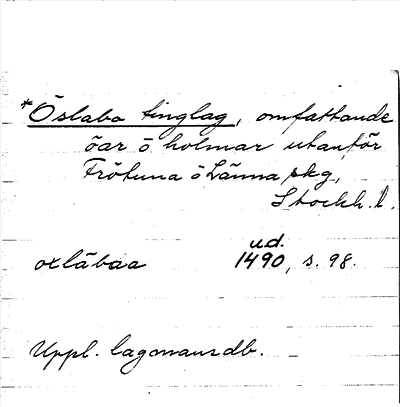 *Öslabo tinglag, omfattande
öar o holmar utanför
Frötuna o Länna skg,
Stockh. l.
ud.
oxlābaa 1490, s. 98.
Uppl. lagmansdb.